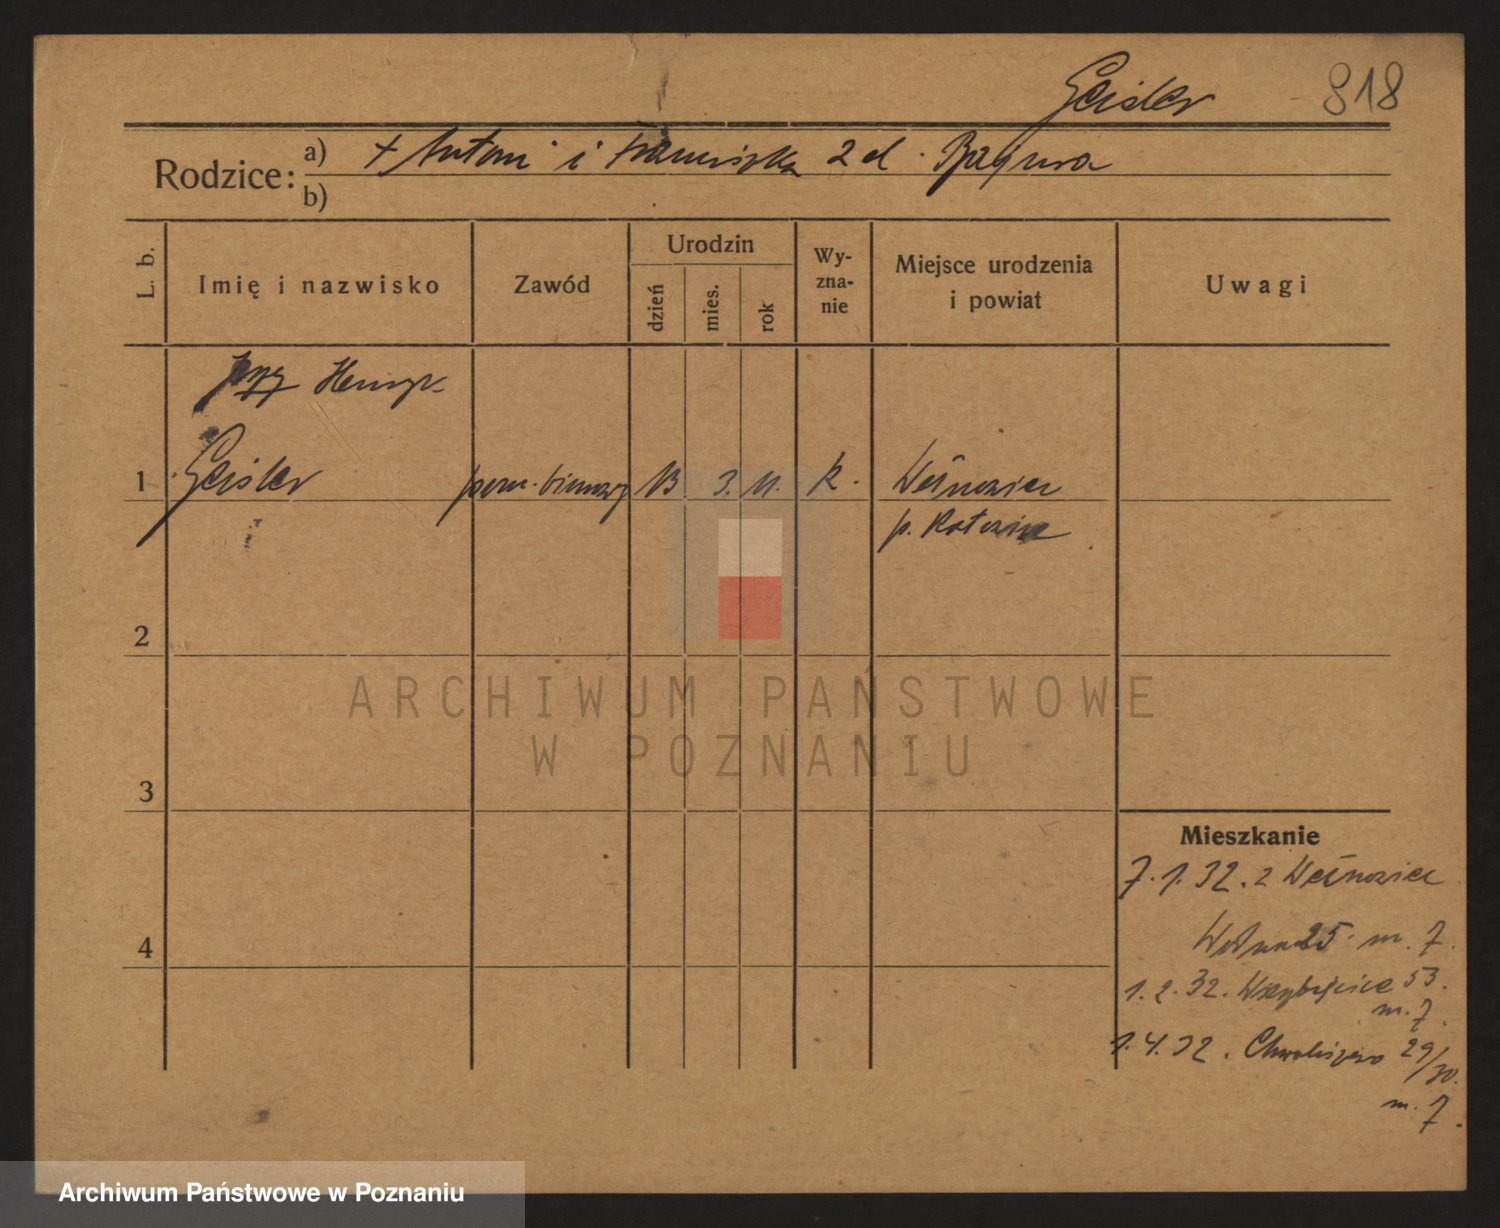 Geisler 818
Rodzice: a) + Antoni i Franciszka 2 d.
b)
L. b.
Imię i nazwisko
Zawód
Urodzin
dzień
mies.
rok
Wy-
zna-
nie
Miejsce urodzenia
i powiat
Uwagi
Jerzy Henryk
1 Geisler pom. biurowy 13. 3. 11. k.
p. Katowice
2
3
4
ARCHIWUM PAŃSTWOWE
W POZNANIU
Mieszkanie
7.1.32. z
25 m. 7.
1.2.32. 53.
m. 7.
1.4.32. Chwaliszewo 29/30.
m. 7.
Archiwum Państwowe w Poznaniu